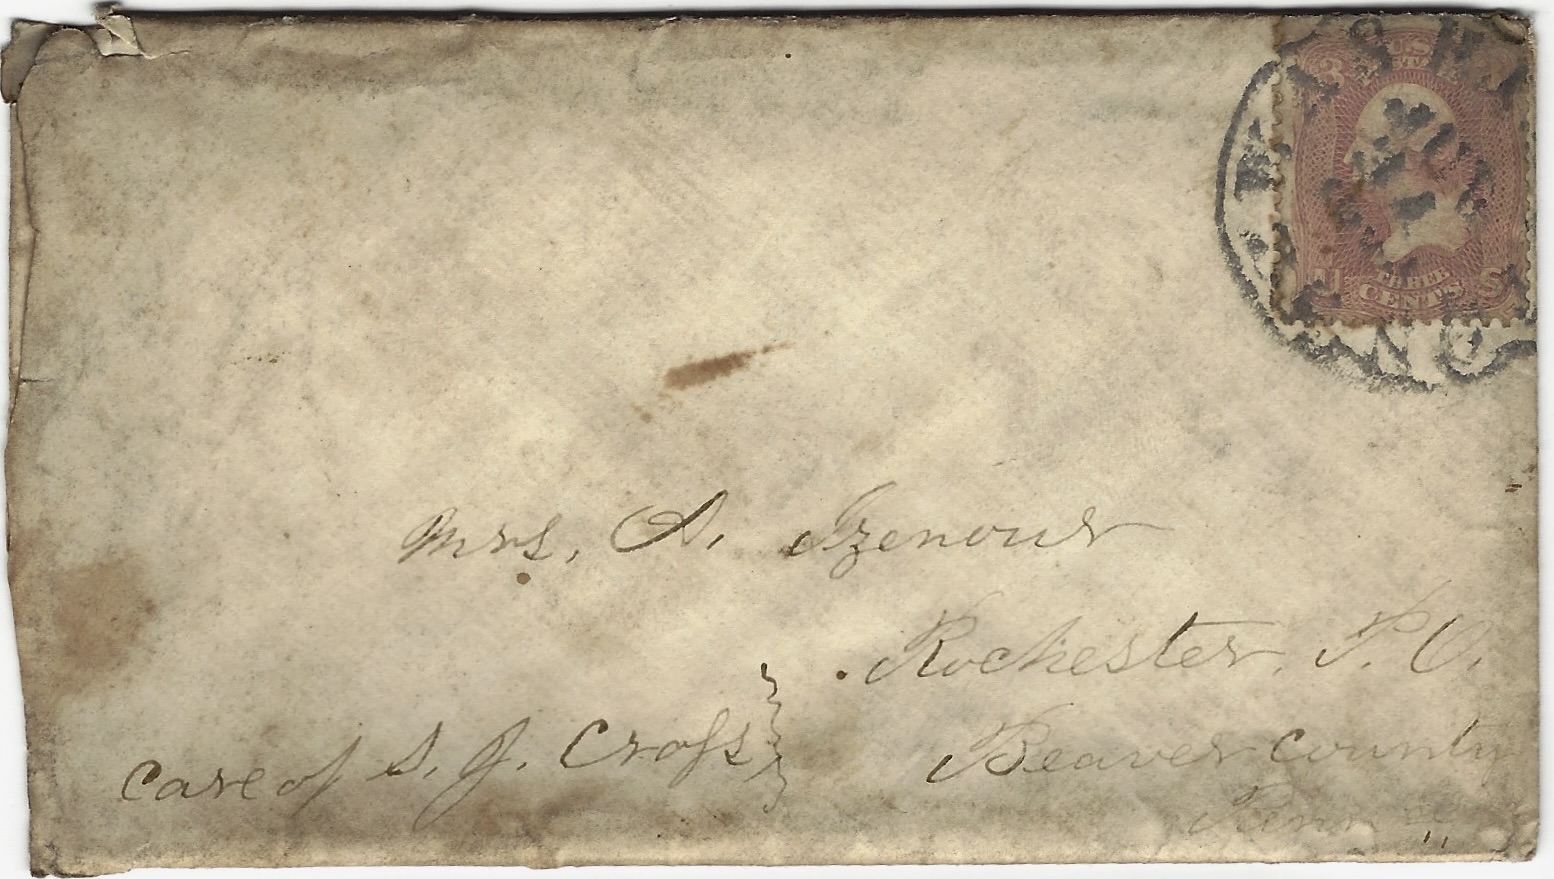 U.S.
3
THREE
U CENTS S
Mrs. A. Izenour
Rochester. P.O.
Care of S. J. Cross
Beaver County
Penn